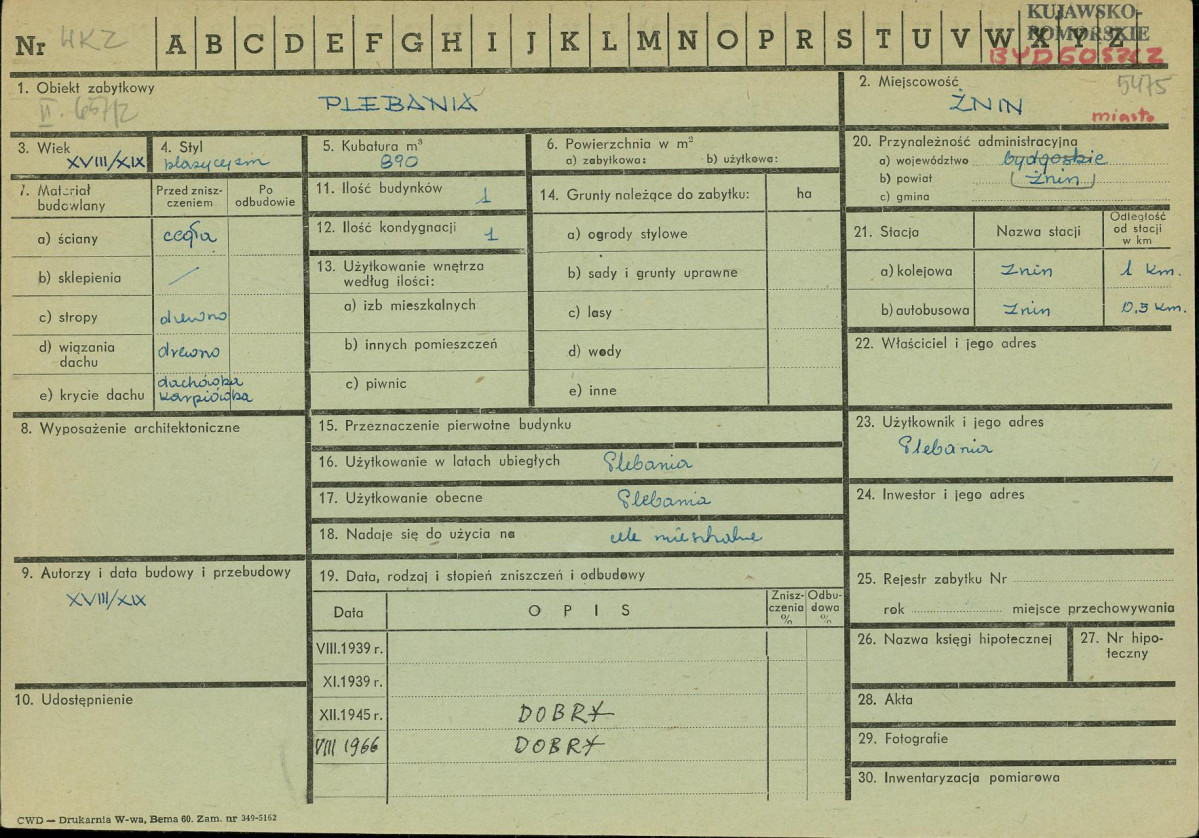 KUJAWSKO-
POMORSKIE
Nr WKZ A B C D E F G H I J K L M N O P R S T U V W X Y Z
BYDGOSZCZ
1. Obiekt zabytkowy
PLEBANIA
II. 657/2
2. Miejscowość
5475
ŻNIN
miasto
3. Wiek
XVIII/XIX
4. Styl
klasycyzm
5. Kubatura m³
890
6. Powierzchnia w m²
a) zabytkowa: b) użytkowa:
20. Przynależność administracyjna
a) województwo bydgoskie
b) powiat Żnin
c) gmina
7. Materiał budowlany
Przed zniszczeniem
Po odbudowie
a) ściany cegła
b) sklepienia /
c) stropy drewno
d) wiązania dachu drewno
e) krycie dachu dachówka karpiówka
11. Ilość budynków 1
12. Ilość kondygnacji 1
13. Użytkowanie wnętrza
według ilości:
a) izb mieszkalnych
b) innych pomieszczeń
c) piwnic
14. Grunty należące do zabytku: ha
a) ogrody stylowe
b) sady i grunty uprawne
c) lasy
d) wody
e) inne
21. Stacja Nazwa stacji Odległość od stacji w km
a) kolejowa Żnin 1 km.
b) autobusowa Żnin 0,3 km.
22. Właściciel i jego adres
8. Wyposażenie architektoniczne
15. Przeznaczenie pierwotne budynku
16. Użytkowanie w latach ubiegłych Plebania
17. Użytkowanie obecne Plebania
18. Nadaje się do użycia na cele mieszkalne
23. Użytkownik i jego adres
Plebania
24. Inwestor i jego adres
9. Autorzy i data budowy i przebudowy
XVIII/XIX
19. Data, rodzaj i stopień zniszczeń i odbudowy
Data OPIS Zniszczenia % Odbudowa %
VIII.1939 r.
XI.1939 r.
XII.1945 r. DOBRY
VIII 1966 DOBRY
25. Rejestr zabytku Nr
rok miejsce przechowywania
26. Nazwa księgi hipotecznej
27. Nr hipoteczny
10. Udostępnienie
28. Akta
29. Fotografie
30. Inwentaryzacja pomiarowa
CWD — Drukarnia W-wa, Bema 60. Zam. nr 349-5162